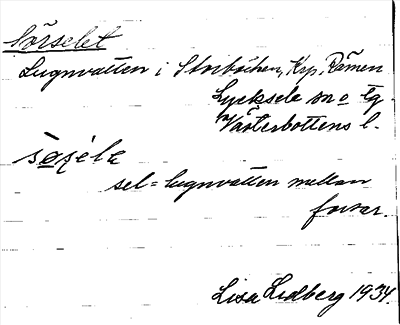 Sörselet
Lugnvatten i Storbäcken, Krp. Rämen
Lycksele sn o tg.
Västerbottens l.
sel = lugnvatten mellan
forsar.
Lisa Lidberg 1934.